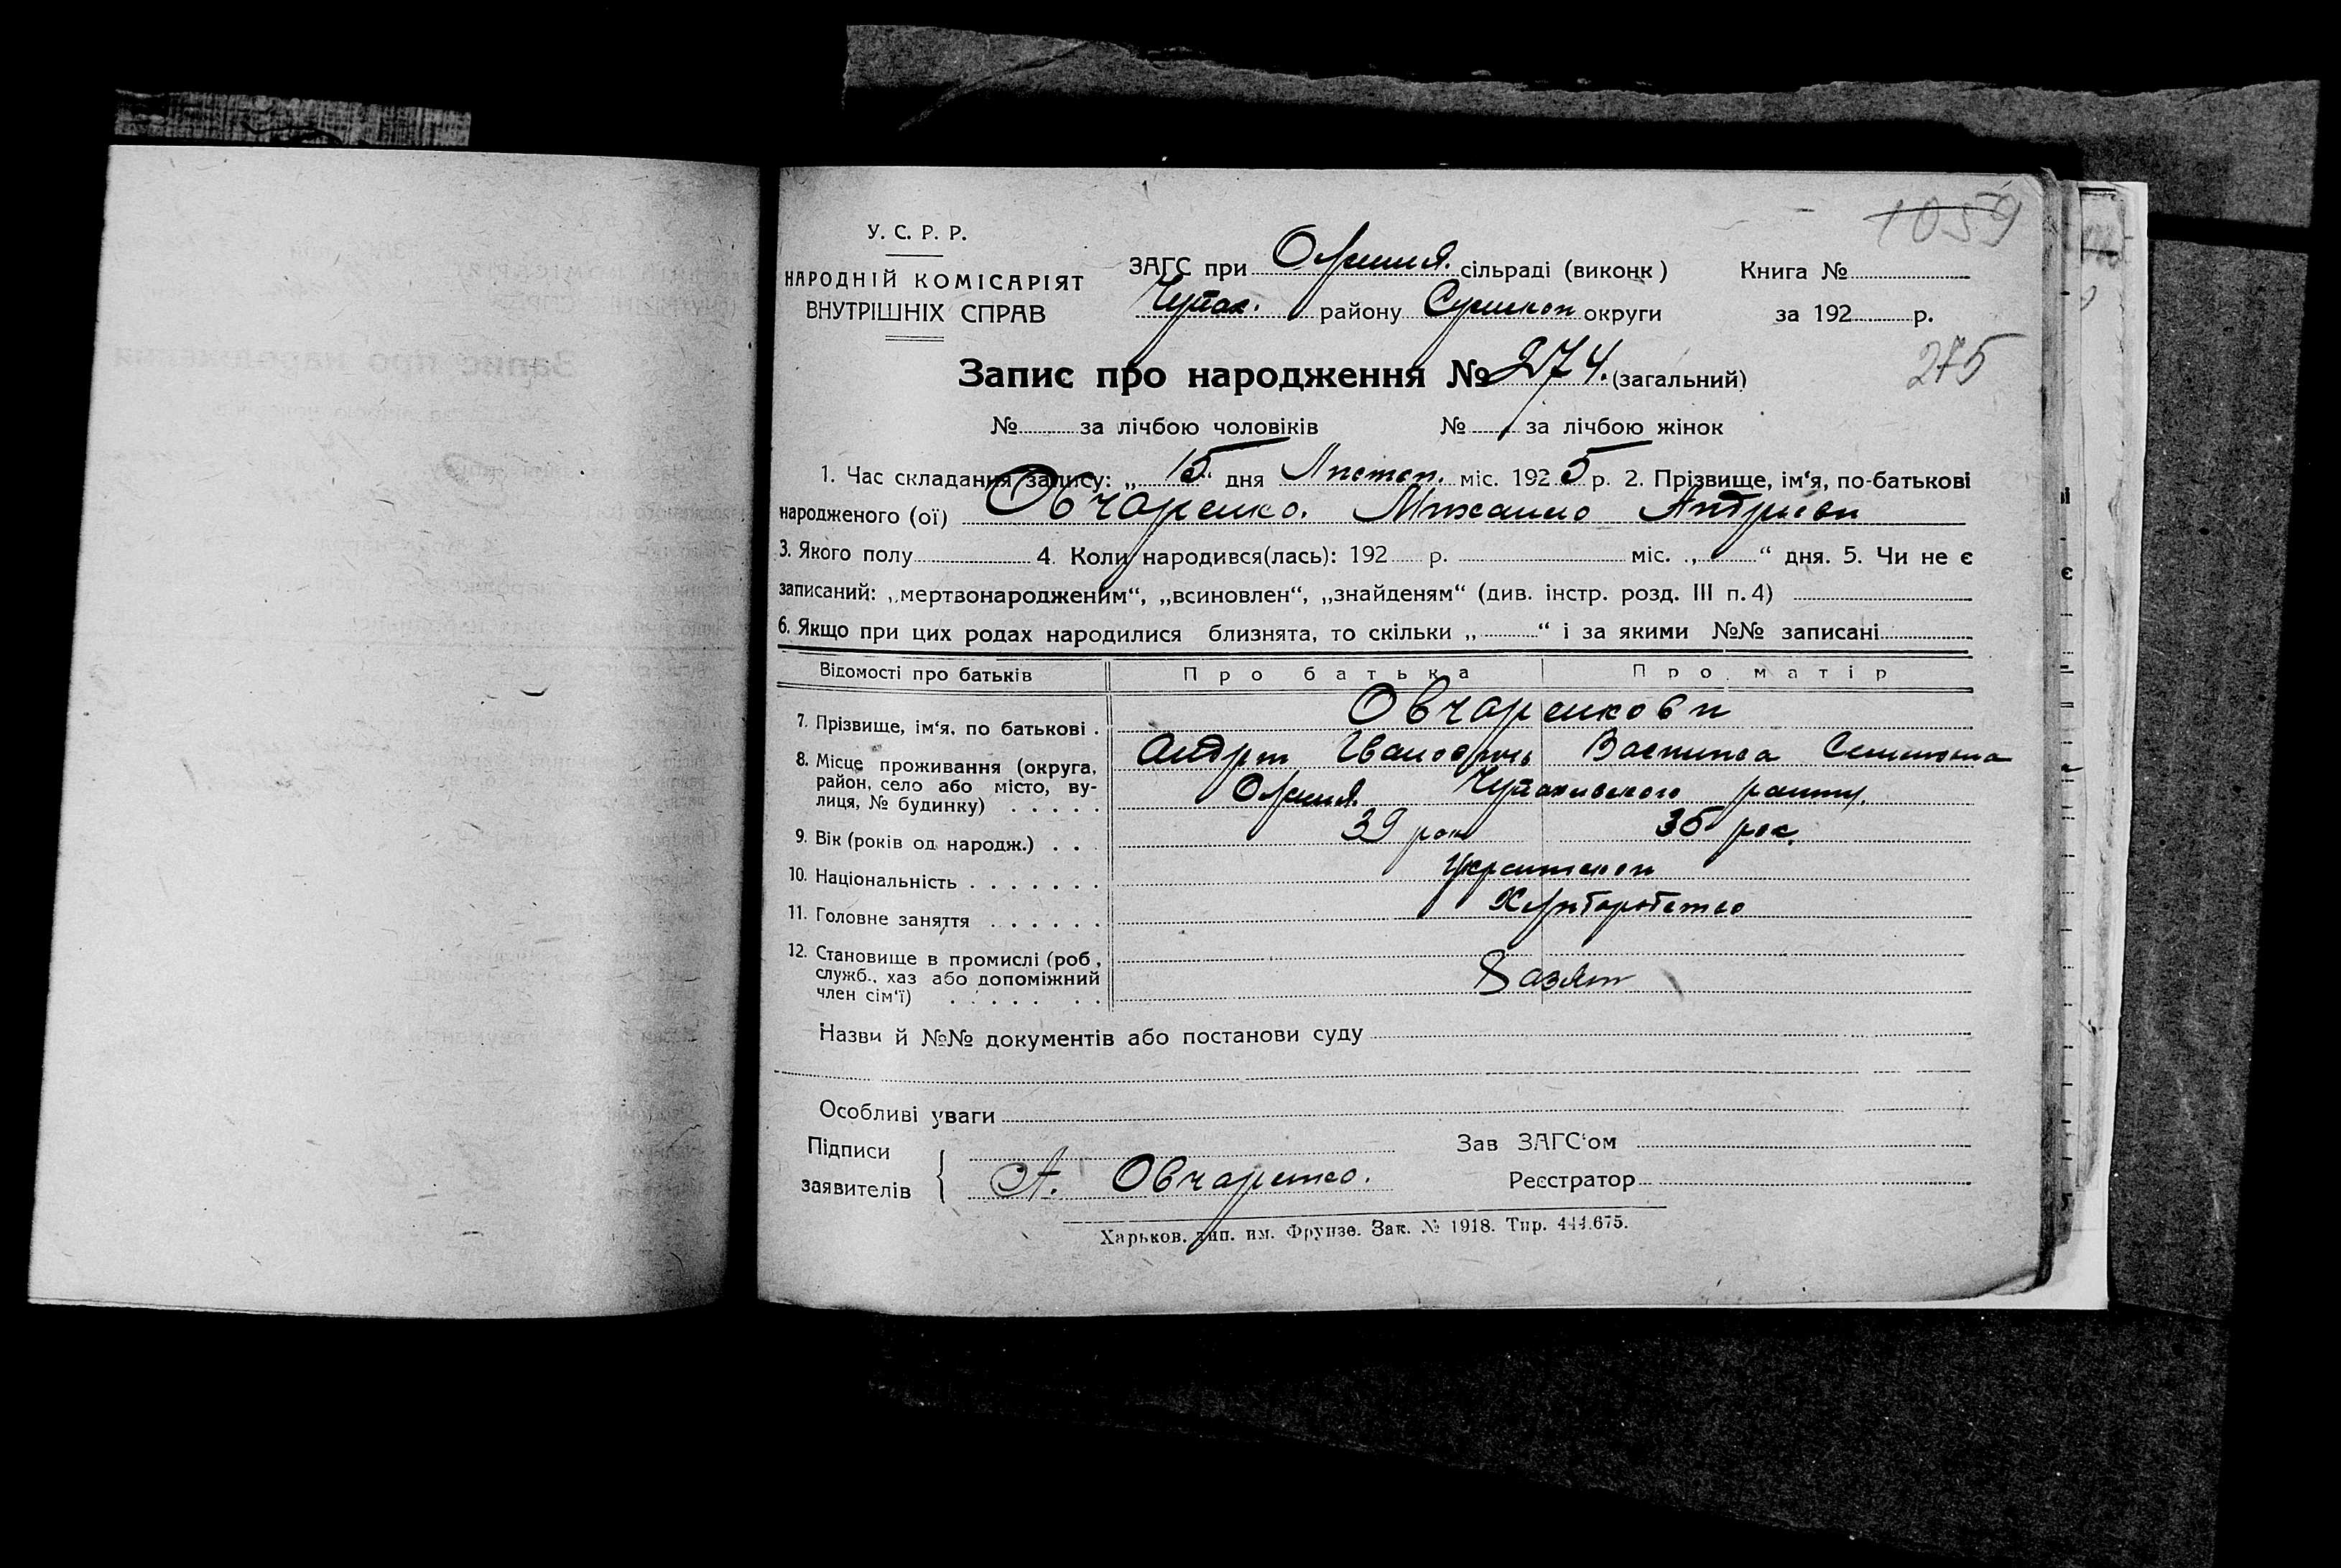 1059
У. С. Р. Р.
НАРОДНІЙ КОМІСАРІЯТ
ВНУТРІШНІХ СПРАВ
ЗАГС при сільраді (виконк)
Чутов. району округи
Книга №
за 192 р.
275
Запис про народження № 274. (загальний)
№ за лічбою чоловіків № за лічбою жінок
1. Час складання запису: „15“ дня Листоп. міс. 1925 р. 2. Прізвище, ім‘я, по-батькові
народженого (ої) Овчаренко. Михаило Андріеви
3. Якого полу 4. Коли народився(лась): 192 р. міс. „ “ дня. 5. Чи не є
записаний: „мертвонародженим“, „всиновлен“, „знайденям“ (див. інстр. розд. III п. 4)
6. Якщо при цих родах народилися близнята, то скільки „ “ і за якими №№ записані
Відомості про батьків Про батька Про матір
7. Прізвище, ім‘я, по батькові . Овчаренкови
Андрій Іванович
8. Місце проживання (округа,
район, село або місто, ву-
лиця, № будинку) . . . . .
району.
9. Вік (років од народж.) . . . 39 рок 35 рок.
10. Національність . . . . . . .
11. Головне заняття . . . . . . Хліборобство
12. Становище в промислі (роб,
служб., хаз або допоміжний
член сім‘ї) . . . . . . .
Хазяин
Назви й №№ документів або постанови суду
Особливі уваги
Підписи
заявителів
А. Овчаренко.
Зав ЗАГС‘ом
Реєстратор
Харьков. тип. им. Фрунзе. Зак. № 1918. Тир. 444.675.